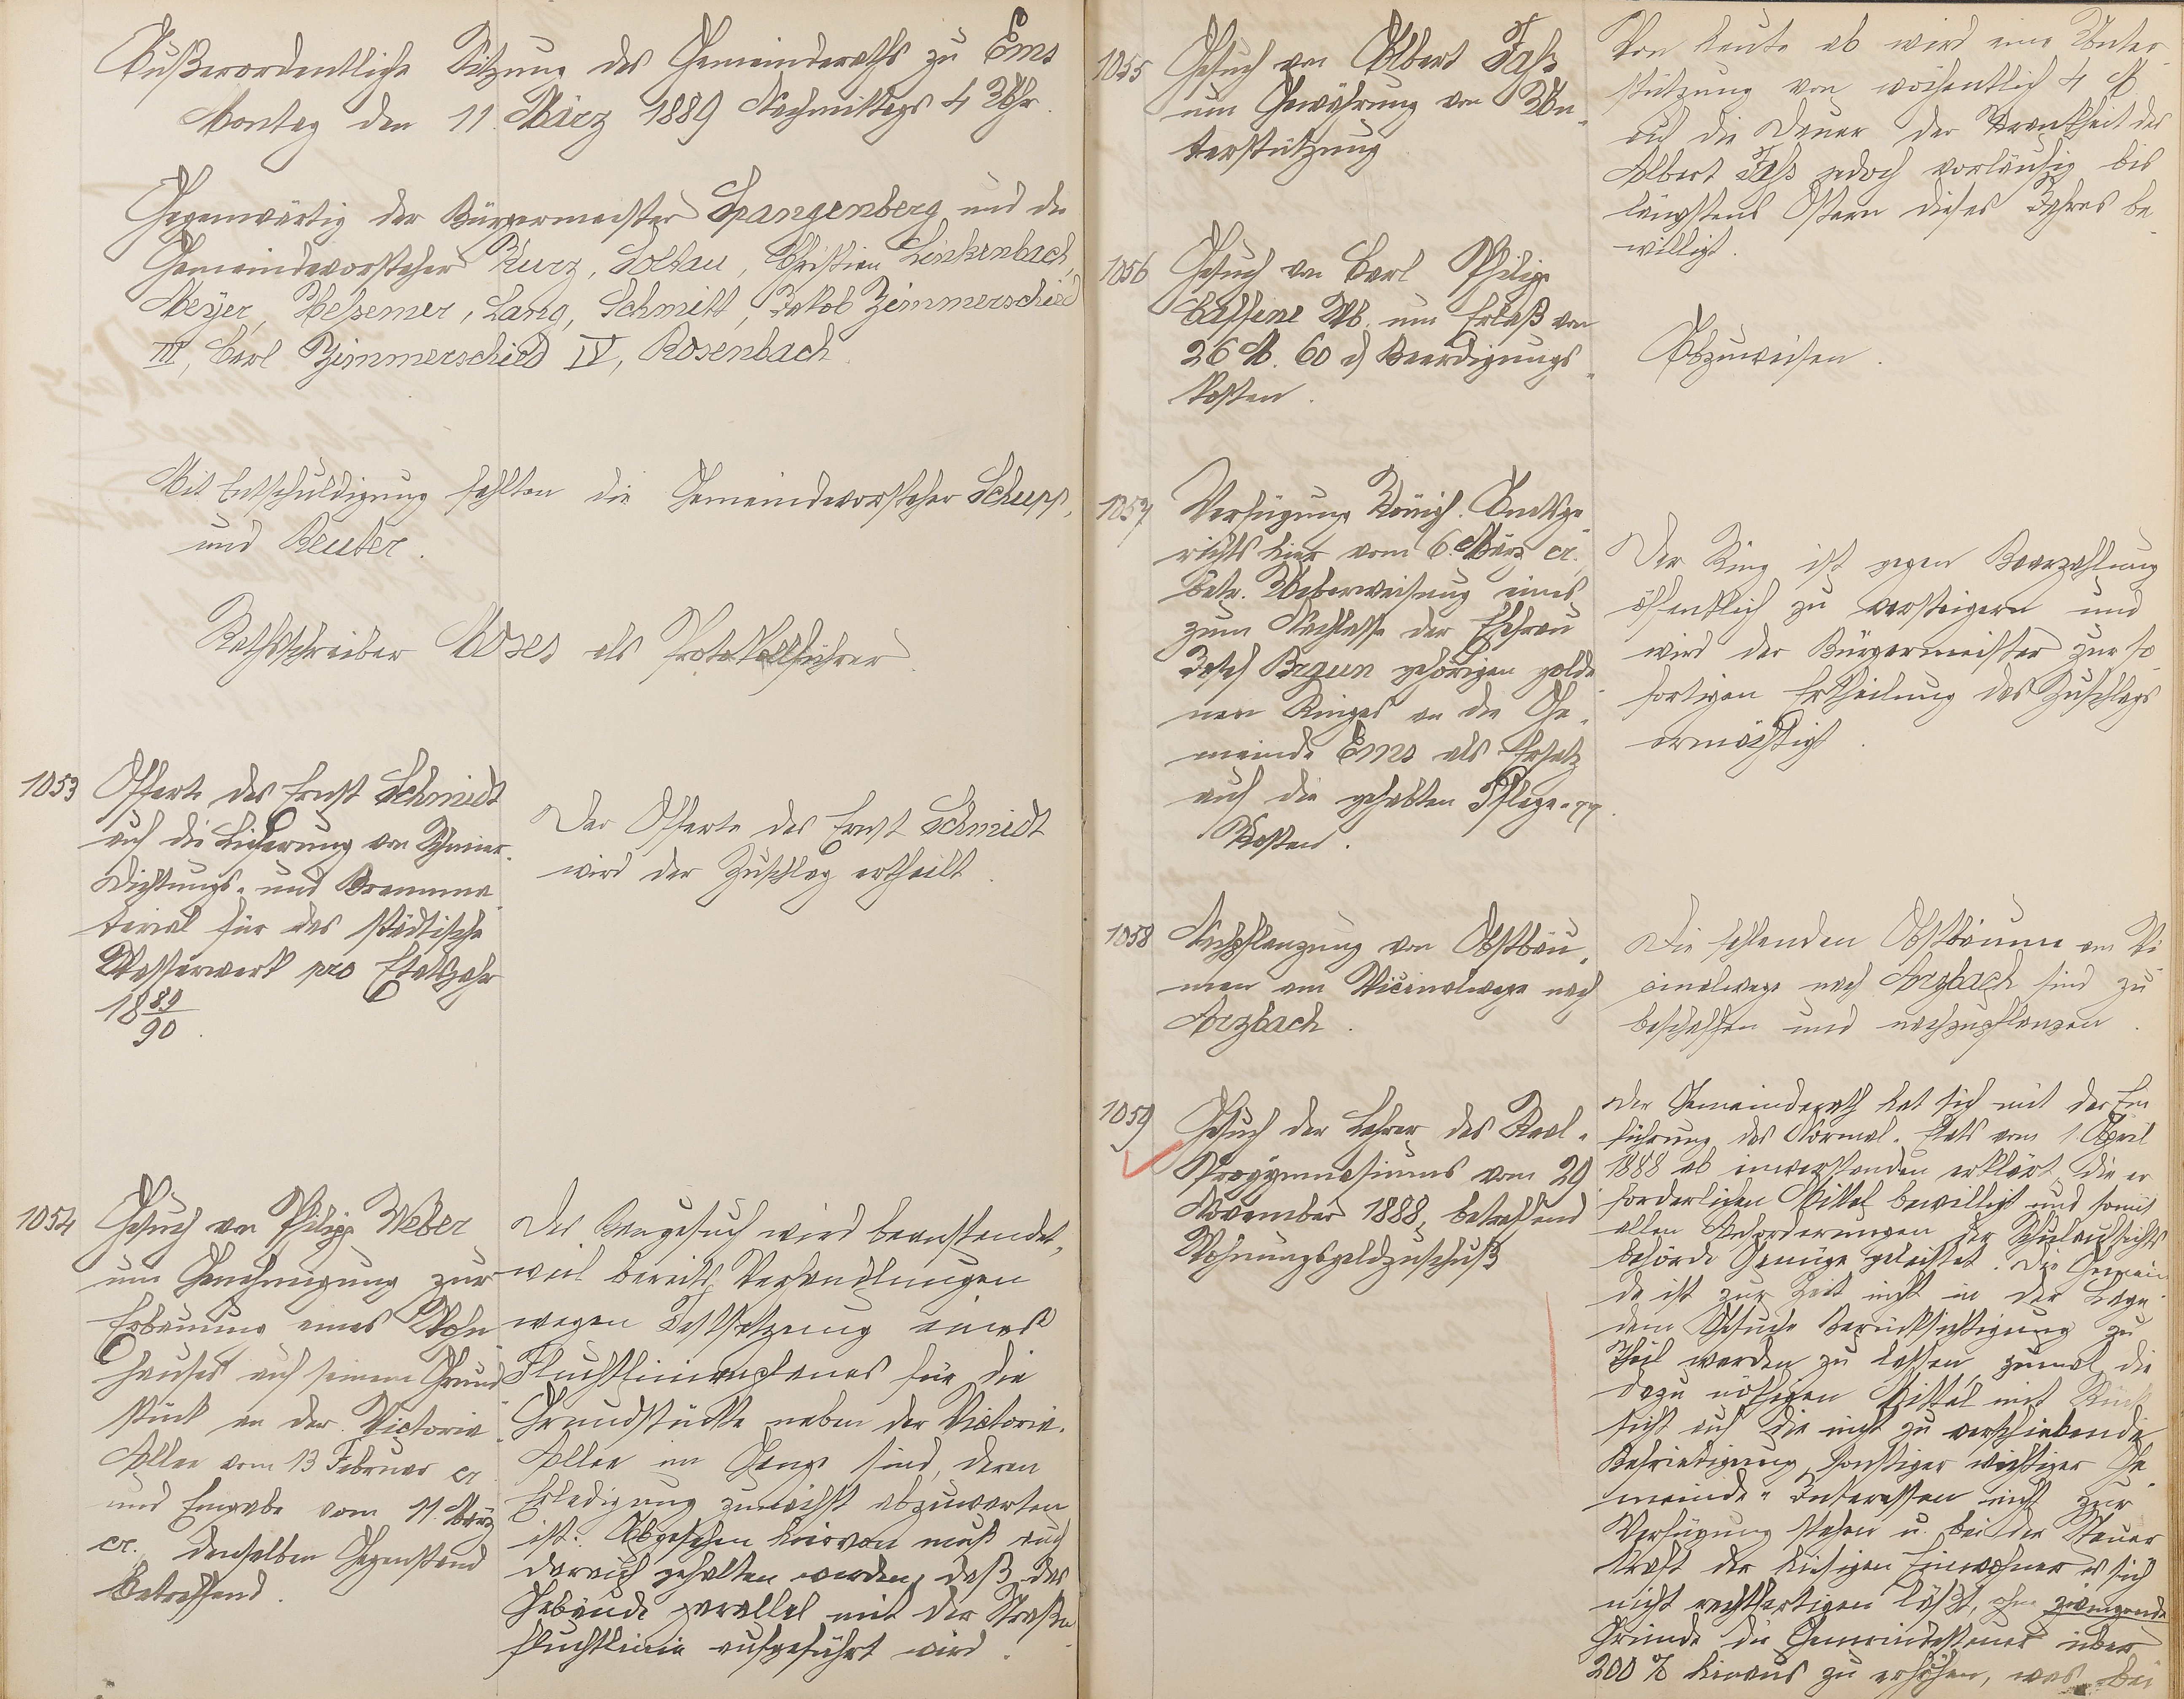 Außerordentliche Sitzung des Gemeinderaths zu Ems
Montag den 11. März 1889 Nachmittags 4 Uhr.
Gegenwärtig der Bürgermeister Spangenberg und die
Gemeindevorsteher Kurz, Soltau, Christian Linkenbach,
Meyer, Weßemer, Lang, Schmitt, Jakob Zimmerschied
III, Carl Zimmerschied IV, Rosenbach.
Mit Entschuldigung fehlten die Gemeindevorsteher Schupp,
und Reuter.
Rathsschreiber Moses als Protokollführer.
1053
Offerte des Ernst Schmidt
auf die Lieferung von Schmier-
Dichtungs- und Brennma-
terial für das städtische
Wasserwerk pro Etatsjahr
1889/90.
Der Offerte des Ernst Schmidt
wird der Zuschlag ertheilt.
1054
Gesuch von Philipp Weber
um Genehmigung zur
Erbauung eines Wohn
hauses auf seinem Grund
stück an der Victoria
Allee vom 13 Februar cr
und Eingabe vom 11. März
cr. denselben Gegenstand
betreffend.
Das Baugesuch wird beanstandet,
weil bereits Verhandlungen
wegen Festsetzung eines
Fluchtlinienplanes für die
Grundstücke neben der Victoria-
Allee im Gange sind, deren
Erledigung zunächst abzuwarten
ist. Abgesehen hiervon muß auch
darauf gehalten werden, daß das
Gebäude parallel mit der Straßen
fluchtlinie aufgeführt wird.
1055
Gesuch von Albert Faß
um Gewährung von Un-
terstützung
Von heute ab wird eine Unter-
stützung von wöchentlich 4 M
auf die Dauer der Krankheit des
Albert Faß jedoch vorläufig bis
längstens Ostern dieses Jahres be-
willigt.
1056
Gesuch von Carl Philipp
Casseine Wb. um Erlaß von
26 M. 60 d Beerdigungs-
kosten.
Abzuweisen.
1057
Verfügung Königl. Amtsge-
richts hier vom 6. März cr.,
betr. Ueberweisung eines
zum Nachlasse der Ehefrau
Josef Braun gehörigen golde-
nen Ringes an die Ge-
meinde Ems als Ersatz
auf die gehabten Pflege- pp.
Kosten.
Der Ring ist gegen Baarzahlung
öffentlich zu versteigern und
wird der Bürgermeister zur so-
fortigen Ertheilung des Zuschlags
ermächtigt.
1058
Nachpflanzung von Obstbäu-
men am Vicinalwege nach
Arzbach.
Die fehlenden Obstbäume am Vi-
cinalwege nach Arzbach sind zu
beschaffen und nachzupflanzen.
1059
Gesuch der Lehrer des Real-
Progymnasiums vom 29
November 1888, betreffend
Wohnungsgeldzuschuß
Der Gemeinderath hat sich mit der Ein
führung des Normal-Etats vom 1. April
1888 ab einverstanden erklärt die er
forderlichen Mittel bewilligt und somit
allen Anforderungen der Schulaufsichts
behörde Genüge geleistet. Die Gemein
de ist zur Zeit nicht in der Lage
dem Gesuche Berücksichtigung zu
Theil werden zu lassen, zumal die
dazu nöthigen Mittel mit Rück
sicht auf die nicht zu verschiebende
Befriedigung sonstiger wichtiger Ge-
meinde-Interessen nicht zur
Verfügung stehen u. bei der Steuer
kraft der hiesigen Einwohner es sich
nicht rechtfertigen läßt, ohne zwingende
Gründe die Gemeindesteuer über
200 % hinaus zu erhöhen, was bei